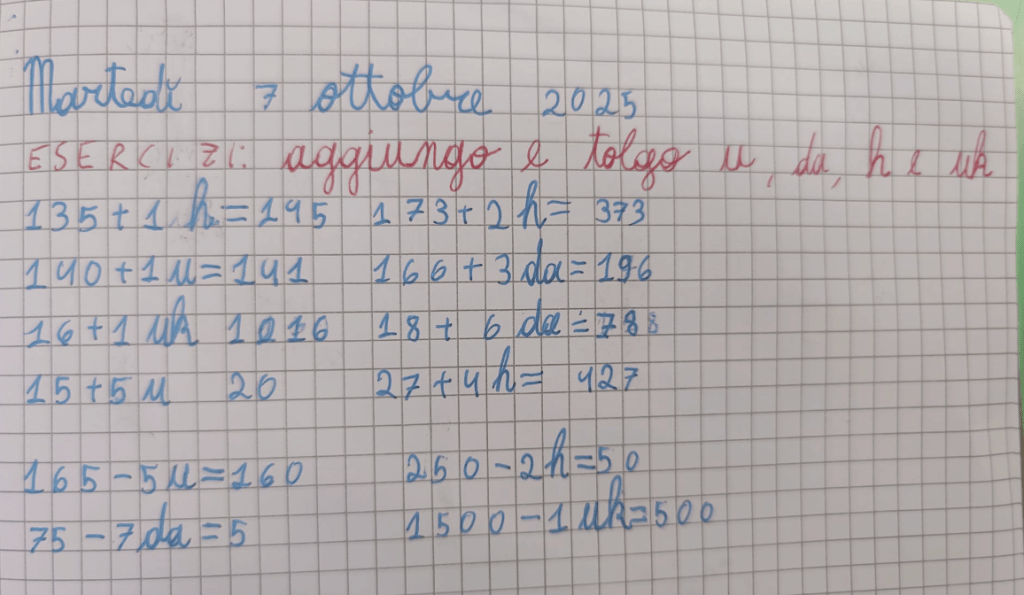 Martedì 7 ottobre 2025
ESERCIZI: aggiungo e tolgo u, da, h e uk
135 + 1 h = 195 173 + 2 h = 373
140 + 1 u = 141 166 + 3 da = 196
16 + 1 uk 1016 18 + 6 da = 788
15 + 5 u 20 27 + 4 h = 427
165 - 5 u = 160 250 - 2 h = 50
75 - 7 da = 5 1500 - 1 uk = 500